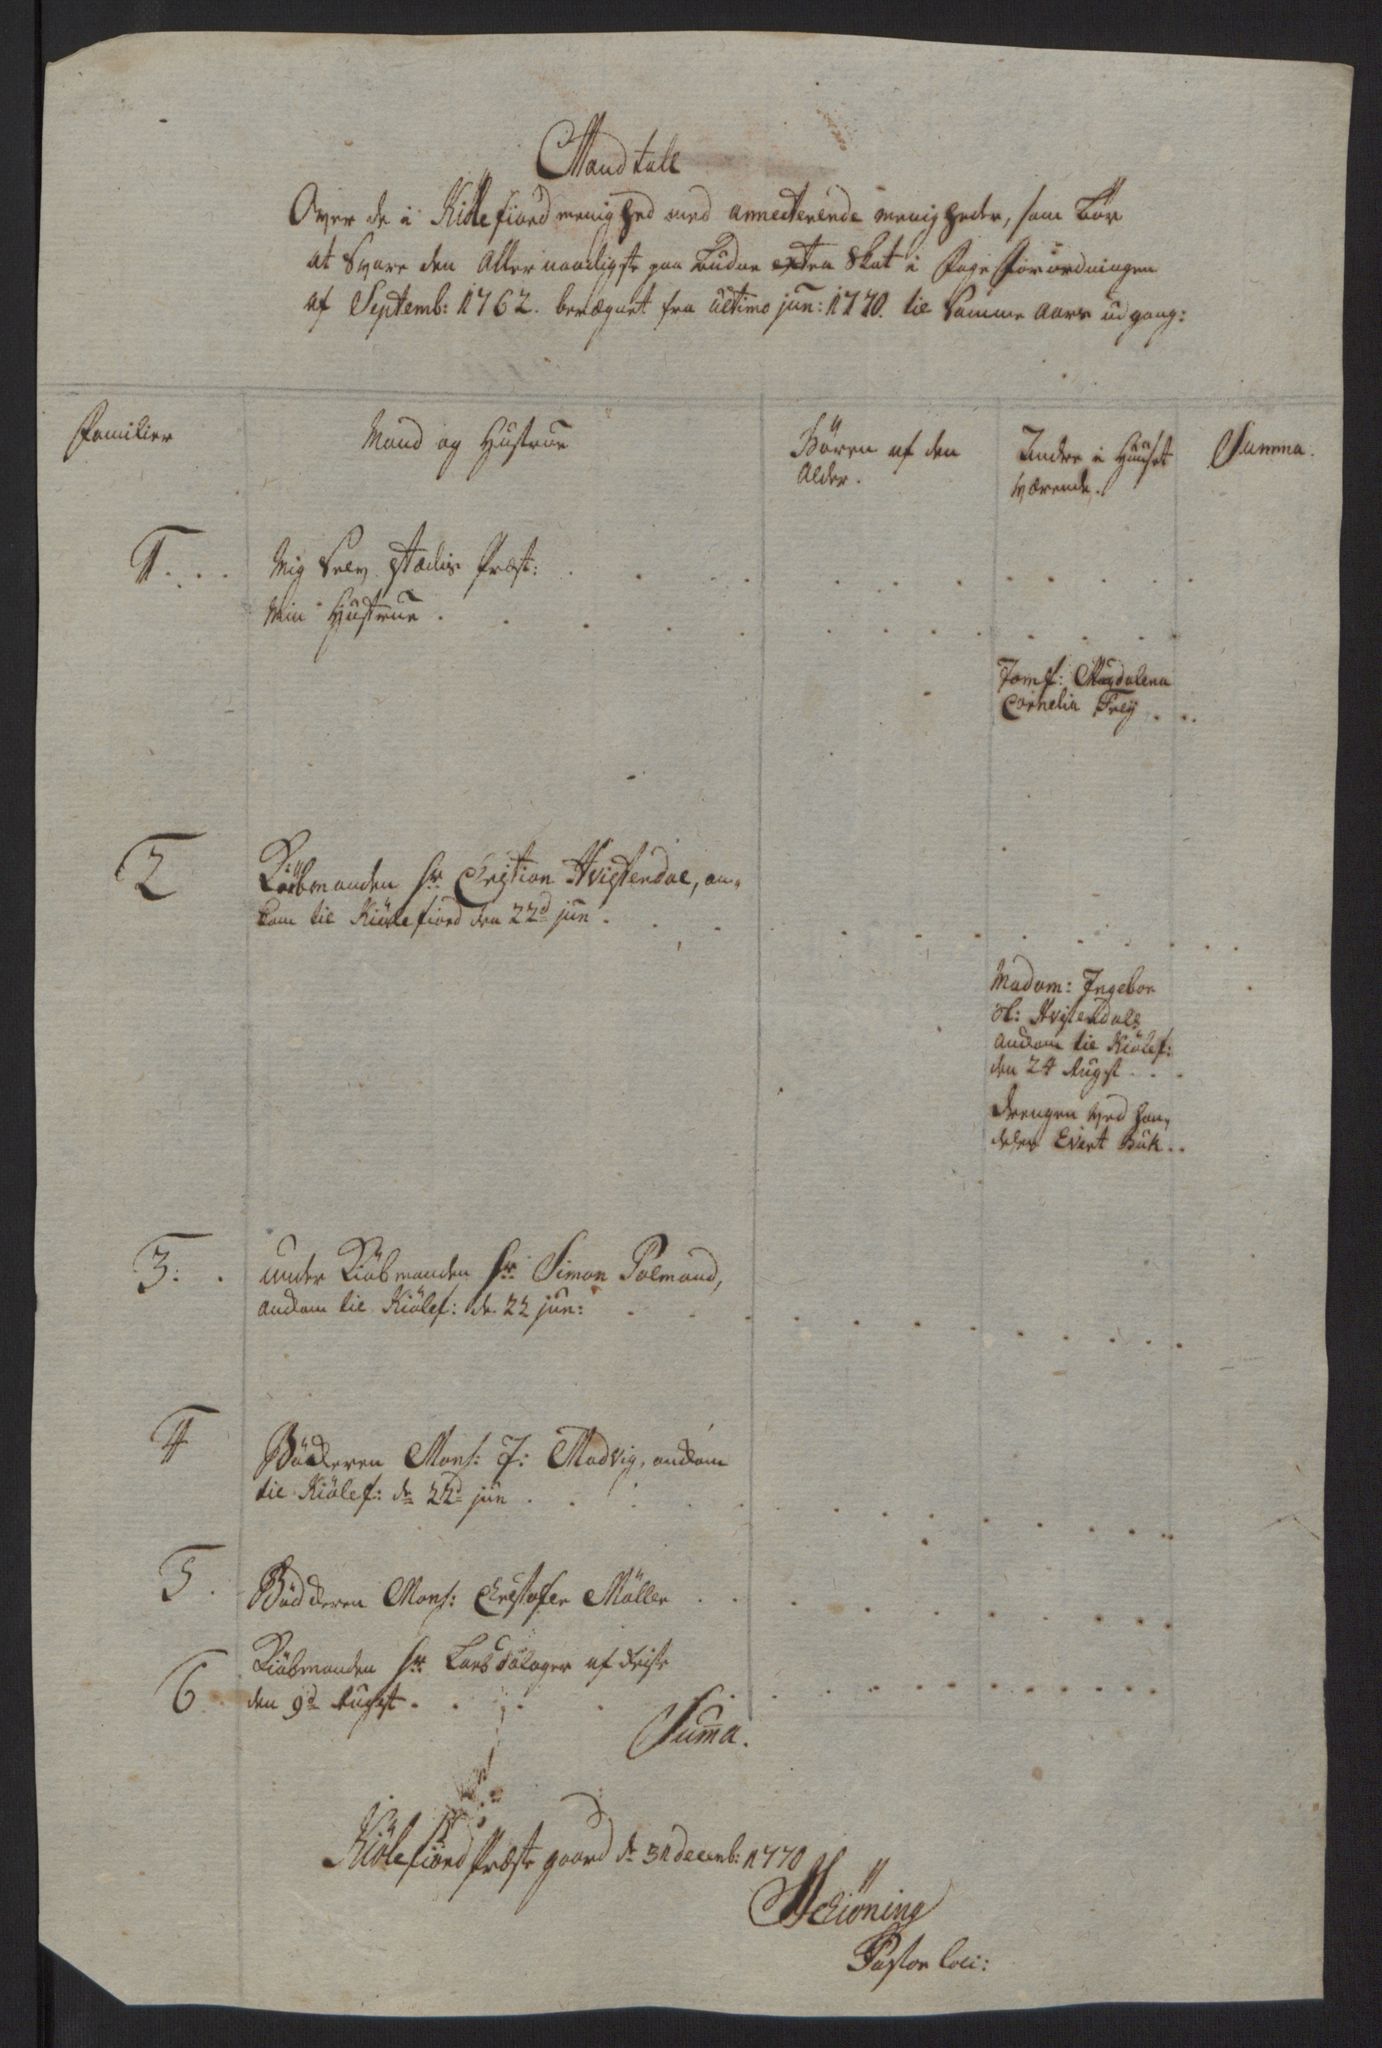 Mandtall
Over de i Kiöllefiord menighed med annecterende menigheder, som bör
at Svare den Allernaadigste paa budne extra Skat i Følge Forordningen
af Septemb: 1762. beregnet fra ultimo jun: 1770. til Samme Aars udgang:
Familier
Mand og Hustrue
Bören af den
Alder.
Andre i Huuset
værende.
Summa.
1...
Mig Selv Stædis Præst:
Min Hustrue.
Jomf: Magdalena
Cornelia Frey
2
Kiöbmanden Sr Christian Hvistendal, an-
kom til Kiöllefiord den 22d jun.
Madam: Ingebor
Hvistendahl
ankom til Kiölef:
den 24 August
Drengen ved Han-
delen Evert Buk..
3:.
Under Kiöbmanden Sr Simon Polmand,
ankom til Kiölef: d. 22 jun:
4
Bödkeren Mons: J: Madvig, ankom
til Kiölef: dn 22d jun
5.
Bödkeren Mons: Christofer Möller
6
Kiöbmanden Sr Lars Dalager af Reiste
den 9d August.
Summa.
Kiölefiord Præste gaard dn 31 decemb: 1770
Schiöning
Pastor loci: